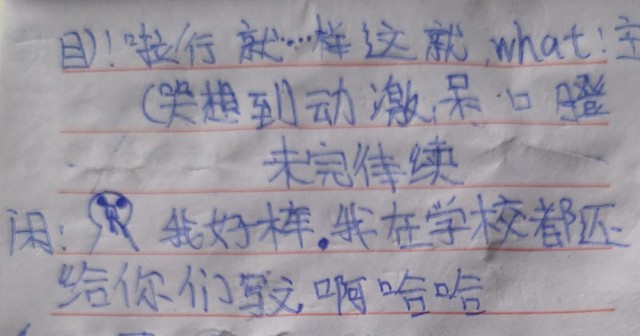 目)!啦行 就…样这就,what!主
(哭想到动激呆口瞪
未完待续
闲: 我好棒。我在学校都还
给你们写文,啊哈哈